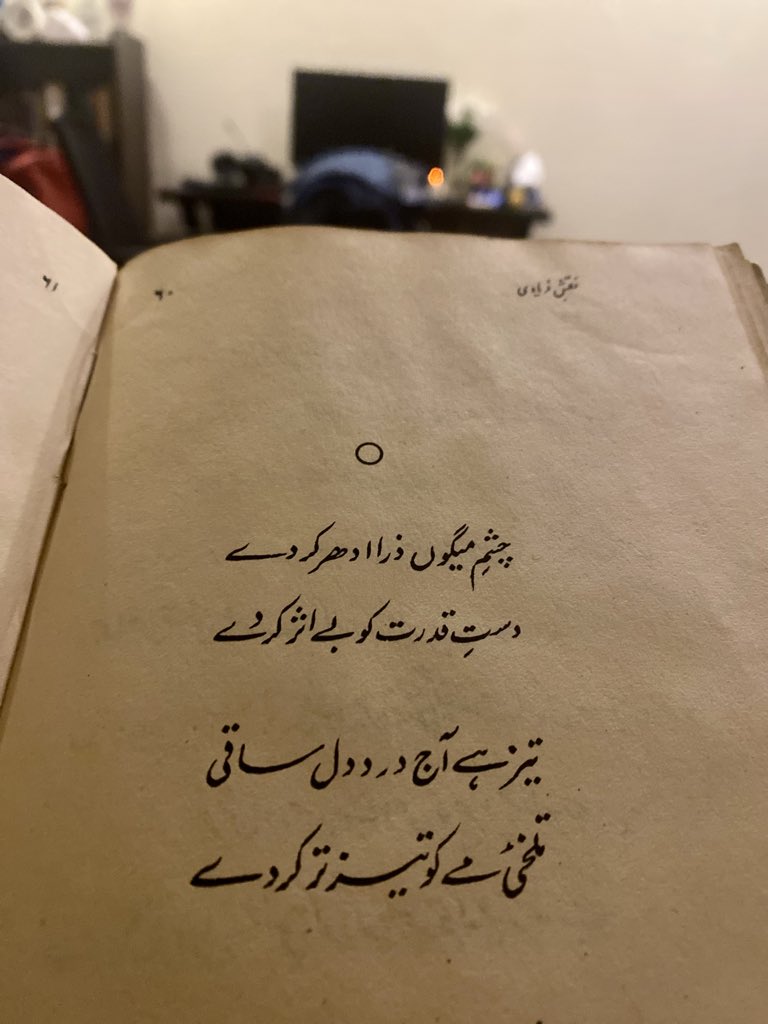 نقش فریادی
۶۰
۶۱
چشمِ میگوں ذرا ادھر کر دے
دستِ قدرت کو بے اثر کر دے
تیز ہے آج دردِ دل ساقی
تلخیٔ مے کو تیز تر کر دے